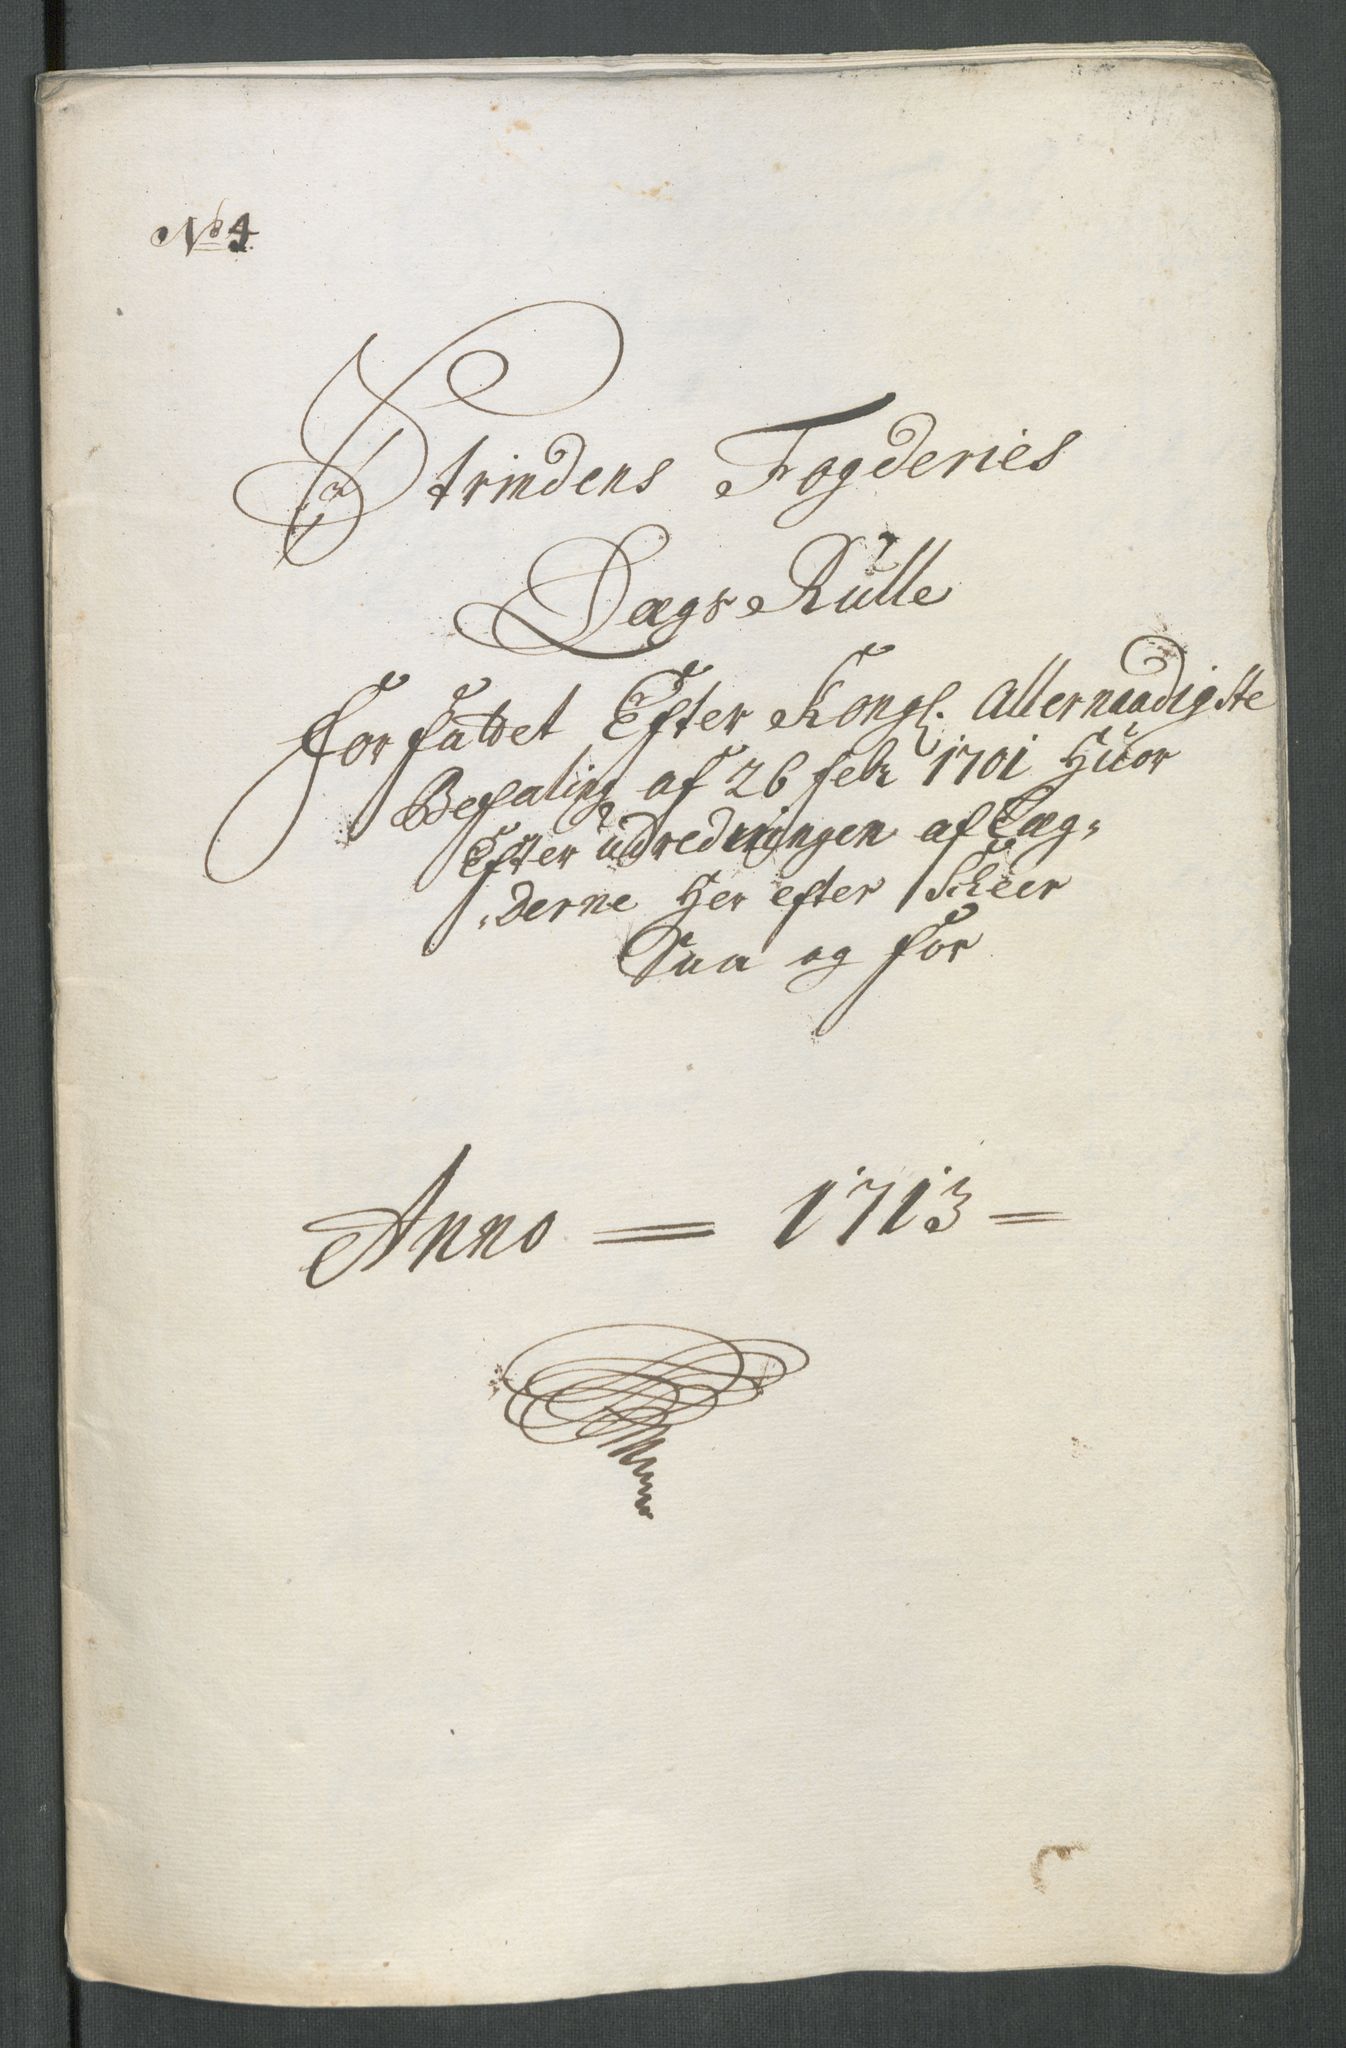 No 4
Strindens Fogderies
Lægs Rulle
Forfattet Efter Kongl. Allernaadigste
Befaling af 26 febr 1701 Huor
Efter udredningen af Læg-
derne Her efter Skeer
Saa og for
Anno = 1713 =